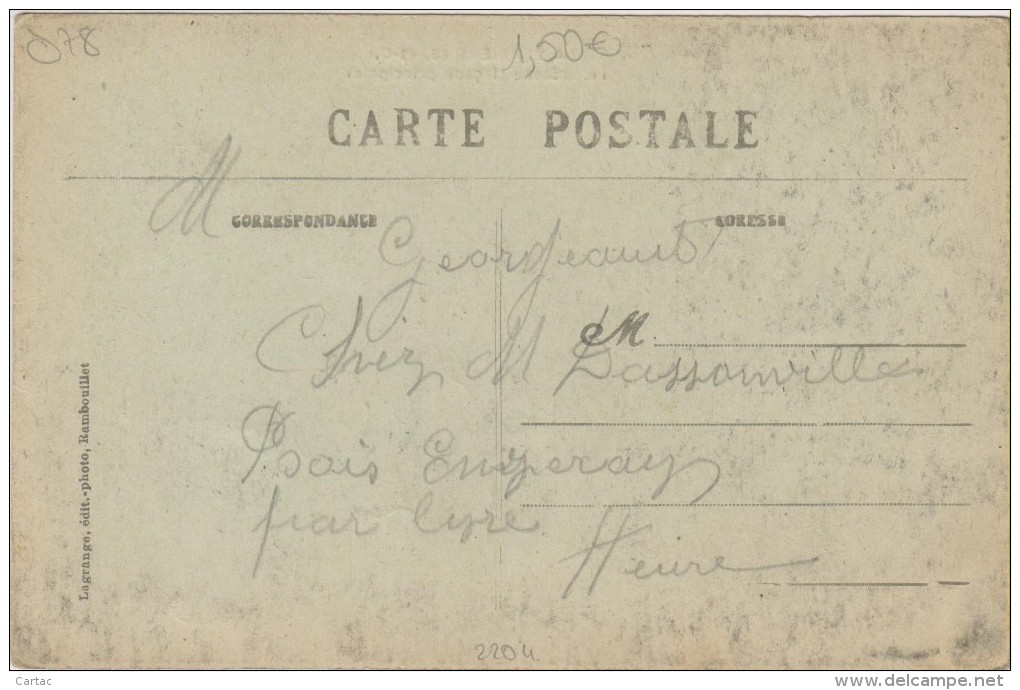 D78
1,50€
CARTE POSTALE
M
CORRESPONDANCE
ADRESSE
Georgeault
M
Chez M Dassonville
Bois Enzeray
par Lyre
Heure
Lagrange, édit.-photo, Rambouillet
2204
Cartac
www.delcampe.net